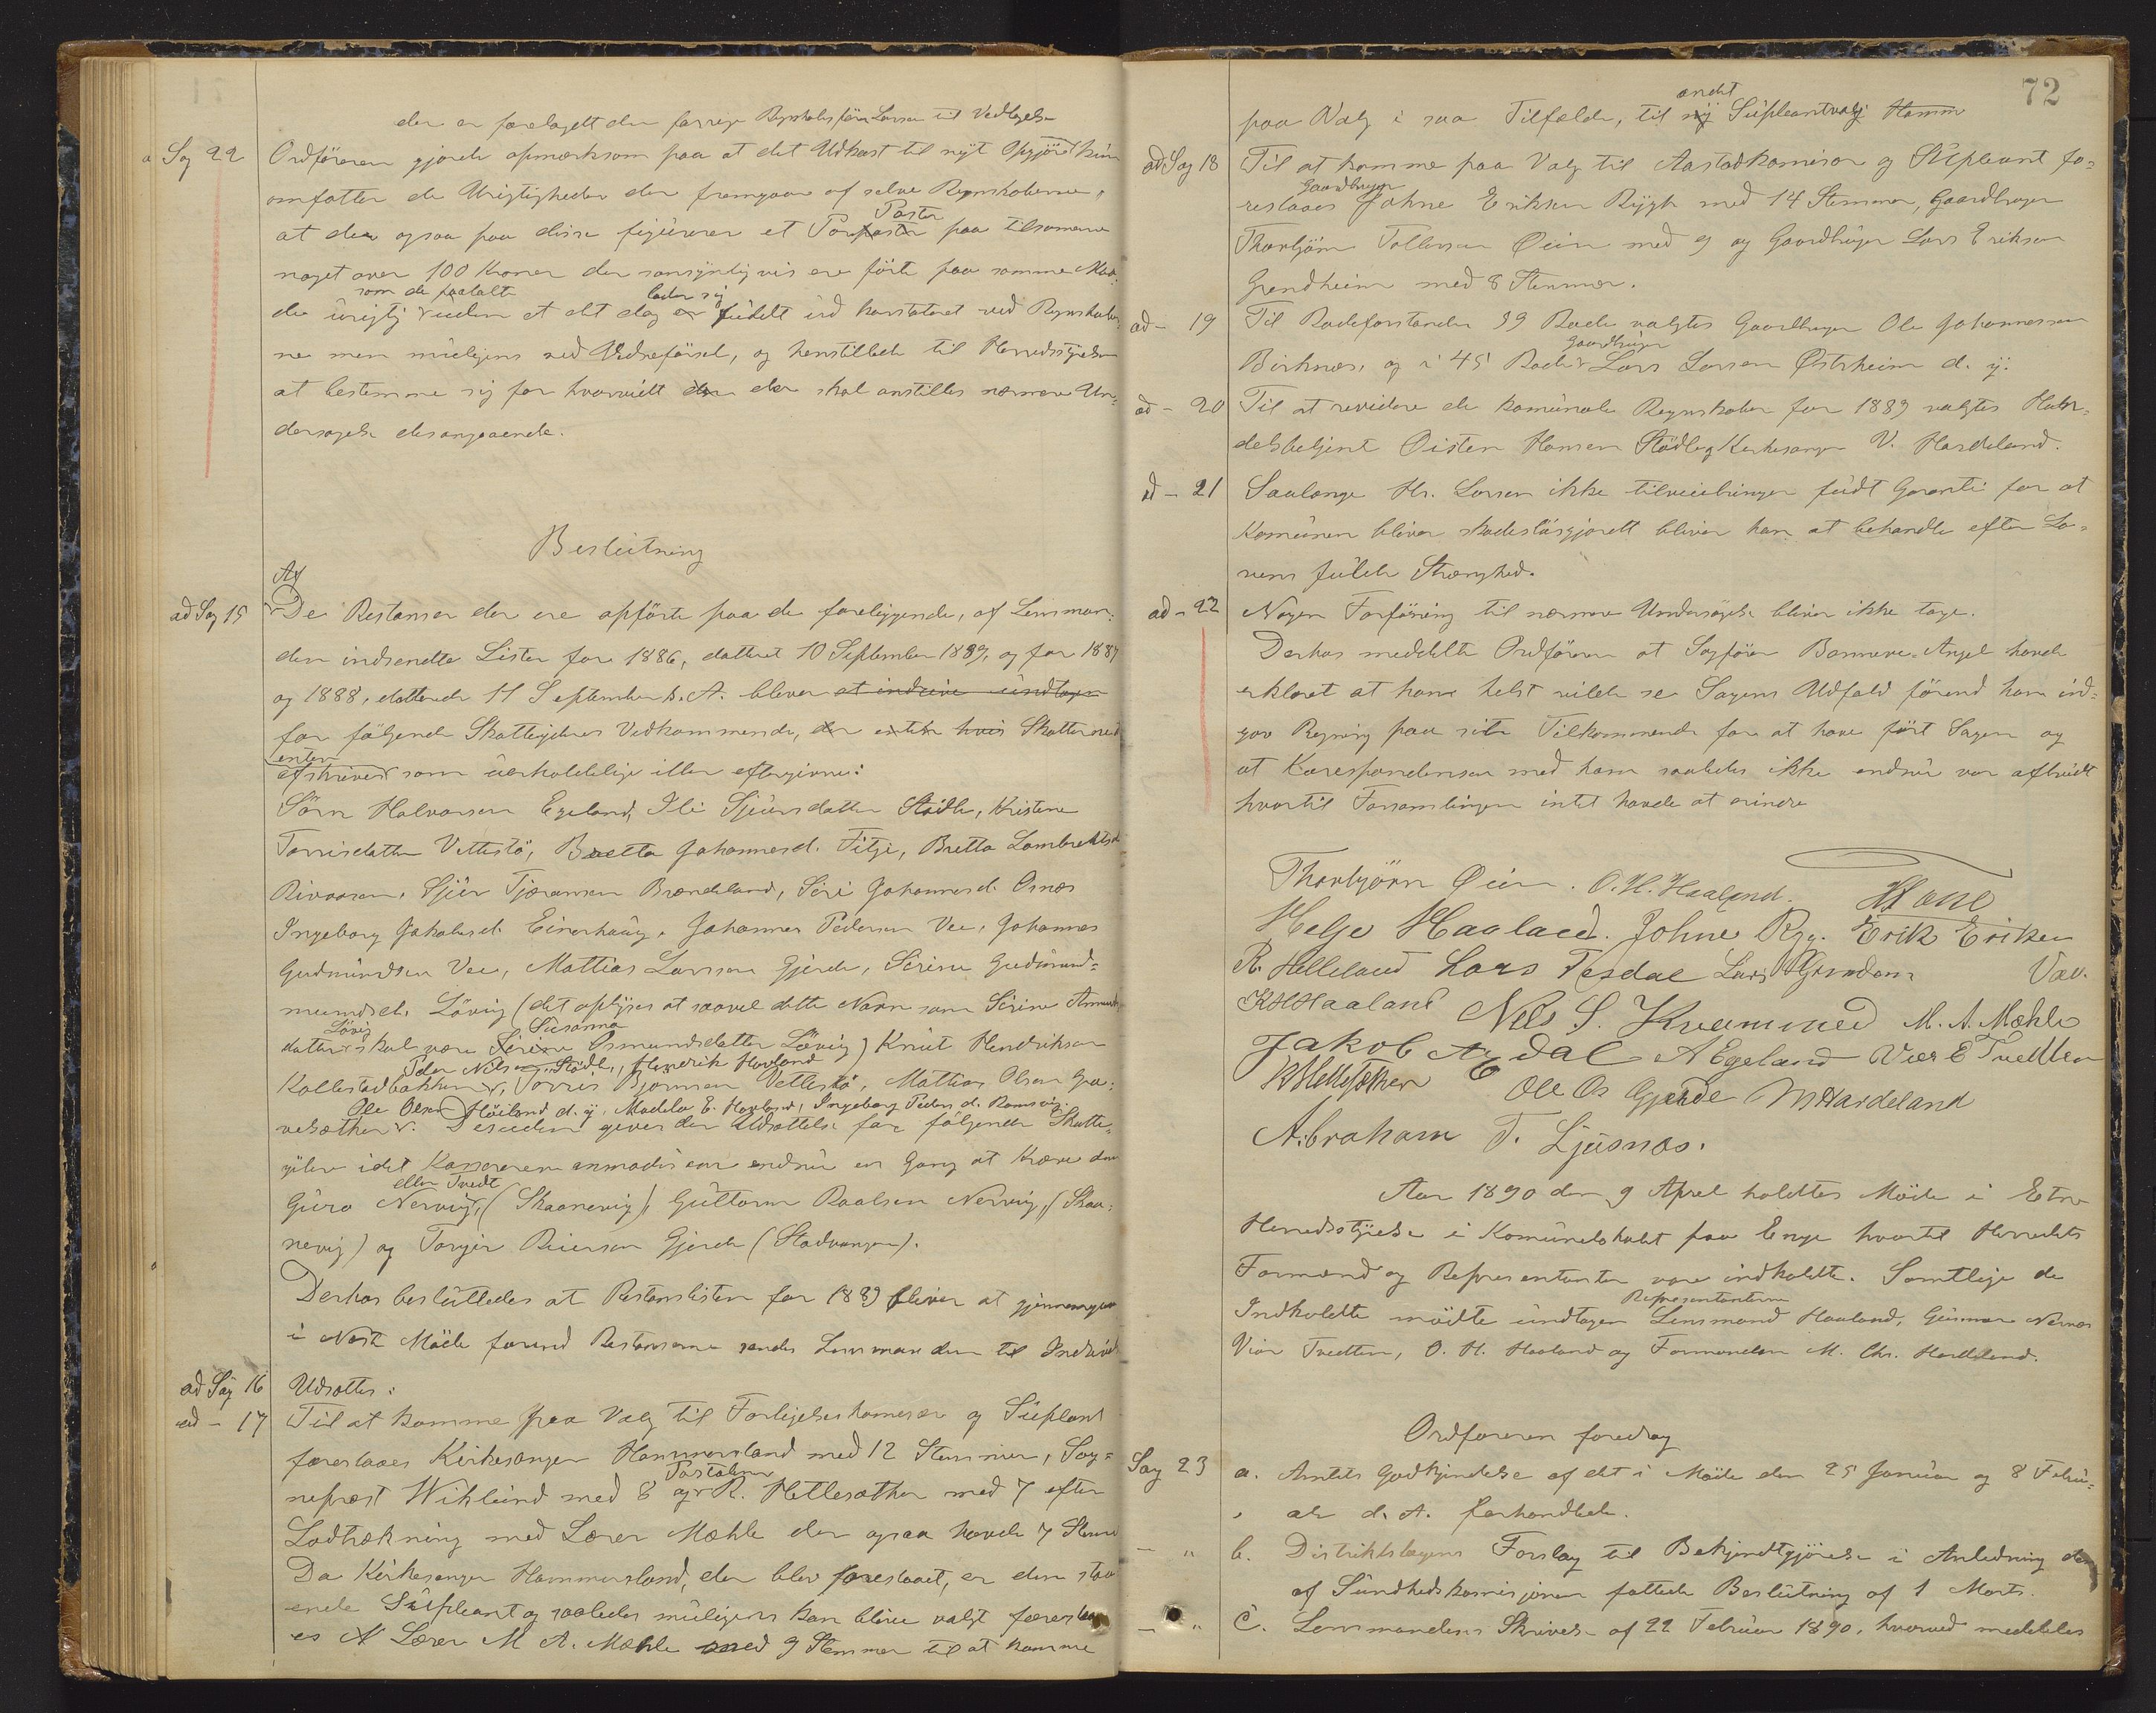 der er forelagdt den forrige Regnskabsfører Larsen til Vedtagelse
a Sag 22 Ordföreren gjorde opmærksom paa at det Udkast til nyt Opgjör kun
omfatter de Urigtigheder der fremgaar af selve Regnskaberne,
Poster
at der ogsaa paa disse figurerer et Par paa tilsammen
noget over 100 Kroner der sansynligvis ere förte paa samme Maa-
som de paatalte lader sig
de urigtig uden at det dog fuldt ud konstateret ved Regnskaber-
ne men muligens ved Vidneförsel, og henstillede til Herredsstyrelsen
at bestemme sig for hvorvidt der skal anstilles nærmere Un-
dersøgelse desangaaende.
Beslutning
Af
ad Sag 15 De Restanser der ere opförte paa de foreliggende, af Lensman-
den indsendte Lister for 1886, datteret 10 September 1889, og for 1887
og 1888, datterede 11 September s. A. bliver at inddrive undtagen
for følgende Skatteyderes Vedkommende, der enten hvis Skatter
enten
afskrives som uerholdelige eller eftergivne:
Sörn Halvorsen Egeland, Ili Sjursdatter Stödle, Kristene
Torrisdatter Vettestö, Bretta Johannesd. Fitje, Bretta Lambrektsd
Sjur Tjæransen Brændeland, Siri Johannesd. Osnes
Ingeborg Jakobsd. Einerhaug, Johannes Pedersen Vee, Johannes
Gudmundsen Vee, Mattias Larsen Gjerde, Serine Gudmund-
mundsd. Lövig (det oplyses at saavel dette Navn som Serine Amunds
Lövig Susanna
datter skal være Serine Osmundsdatter Lövig) Knut Hendriksen
Peder Nilsen Stödle, Hendrik Haaland
Kallestadbakken, Torris Bjørnsen Vettestö, Mattias Olsen Gra-
Ole Olsen Höiland d. y. Madela E. Haaland, Ingeborg Peders d. Ramsvig.
vesæther. Desuden gives der Udsættelse for følgende Skatte-
ydere idet Kassereren anmodes om endnu en Gang at kræve dem
eller Tvedt
Guro Nervig, (Skaanevig), Guttorm Paalsen Nervig, (Skaa-
nevig) og Torger Reiersen Gjerde (Stadvangen).
Derhos besluttedes at Restanslisten for 1889 bliver at gjennemgaa
i Næste Möde forend Restanserne sendes Lensmanden til Inddrivel
ad Sag 16 Udsættes:
ad - 17 Til at komme paa Valg til Forligelseskomesær og Supleant
foreslaaes Kirkesanger Hammersland med 12 Stemmer, Sog-
Postaabner
neprest Wiklund med 8 og R. Hettesæther med 7 efter
Lodtrækning med Lærer Mæhle der ogsaa havde 7 Stemmer
Da Kirkesanger Hammersland, der blev foreslaaet, er den staa-
ende Supleant og saaledes muligens kan blive valgt foreslaa
es Lærer M. A. Mæhle med 9 Stemmer til at komme
72
andet
paa Valg i saa Tilfælde, til ny Supleantvalg
ad Sag 18 Til at komme paa Valg til Aastedkomisær og Supleant fo-
Gaardbruger
reslaaes Johne Eriksen Rygh med 14 Stemmer, Gaardbruger
Thorbjörn Tollevsen Øien med 9 og Gaardbruger Lars Eriksen
Grindheim med 8 Stemmer.
ad - 19 Til Rodeforstander 39 Rode valgtes Gaardbruger Ole Johannessen
Gaardbruger
Birknes, og i 45 Rode Lars Larsen Østrheim d. y.
ad - 20 Til at revidere de komunale Regnskaber for 1889 valgtes Han-
delsbetjent Øisten Hansen Stödle og Kirkesanger V. Hardeland.
ad - 21 Saalænge Hr. Larsen ikke tilveiebringer fuldt Garanti for at
Komunen bliver skadeslösgjordt bliver han at behandle efter Lo-
vens fulde Strenghed.
ad - 22 Nogen Forföining til nærmere Undersögelse bliver ikke tage.
Derhos meddelte Ordföreren at Sagförer Bonnevie-Angel havde
erklæret at han helst vilde se Sagens Udfald förend han ind-
gav Regning paa sit Tilkommende for at have fört Sagen og
at Korespondensen med ham saaledes ikke endnu var afbrudt
hvortil Forsamlingen intet havde at erindre
Thorbjörn Øien. O. H. Haaland.
Helge Haaland. Johne Ryg. Erik Eriksen
R. Helleland Lars Tesdal Vae.
K H Haaland Nels S. Kvammed M. A. Mæhle
Jakob Aedal A Egeland Vier E Tvedten
R Hettesæther Ole Os Gjerde M Hardeland
Abraham T. Ljusnes.
Aar 1890 den 9 April holdtes Möde i Etne
Herredsstyrelse i Komunelokalet paa Enge hvortil Herredets
Formænd og Representanter vare indkaldte. Samtlige de
Representanterne
Indkaldte mödte undtagen Lensmand Haaland, Gunnar Nernes
Vier Tvedten, O. H. Haaland og Formanden M. Chr. Hardeland.
Ordföreren foredrog
Sag 23 a. Amtets Godkjendelse af det i Möde den 25 Januar og 8 Febru-
ar d. A. forhandlede.
— " b. Distriktslægens Forslag til Bekjendtgjörelse i Anledning den
af Sundhedskomisjonen fattede Beslutning af 1 Marts.
— " c. Lensmandens Skrivelse af 22 Februar 1890, hvorved meddeles